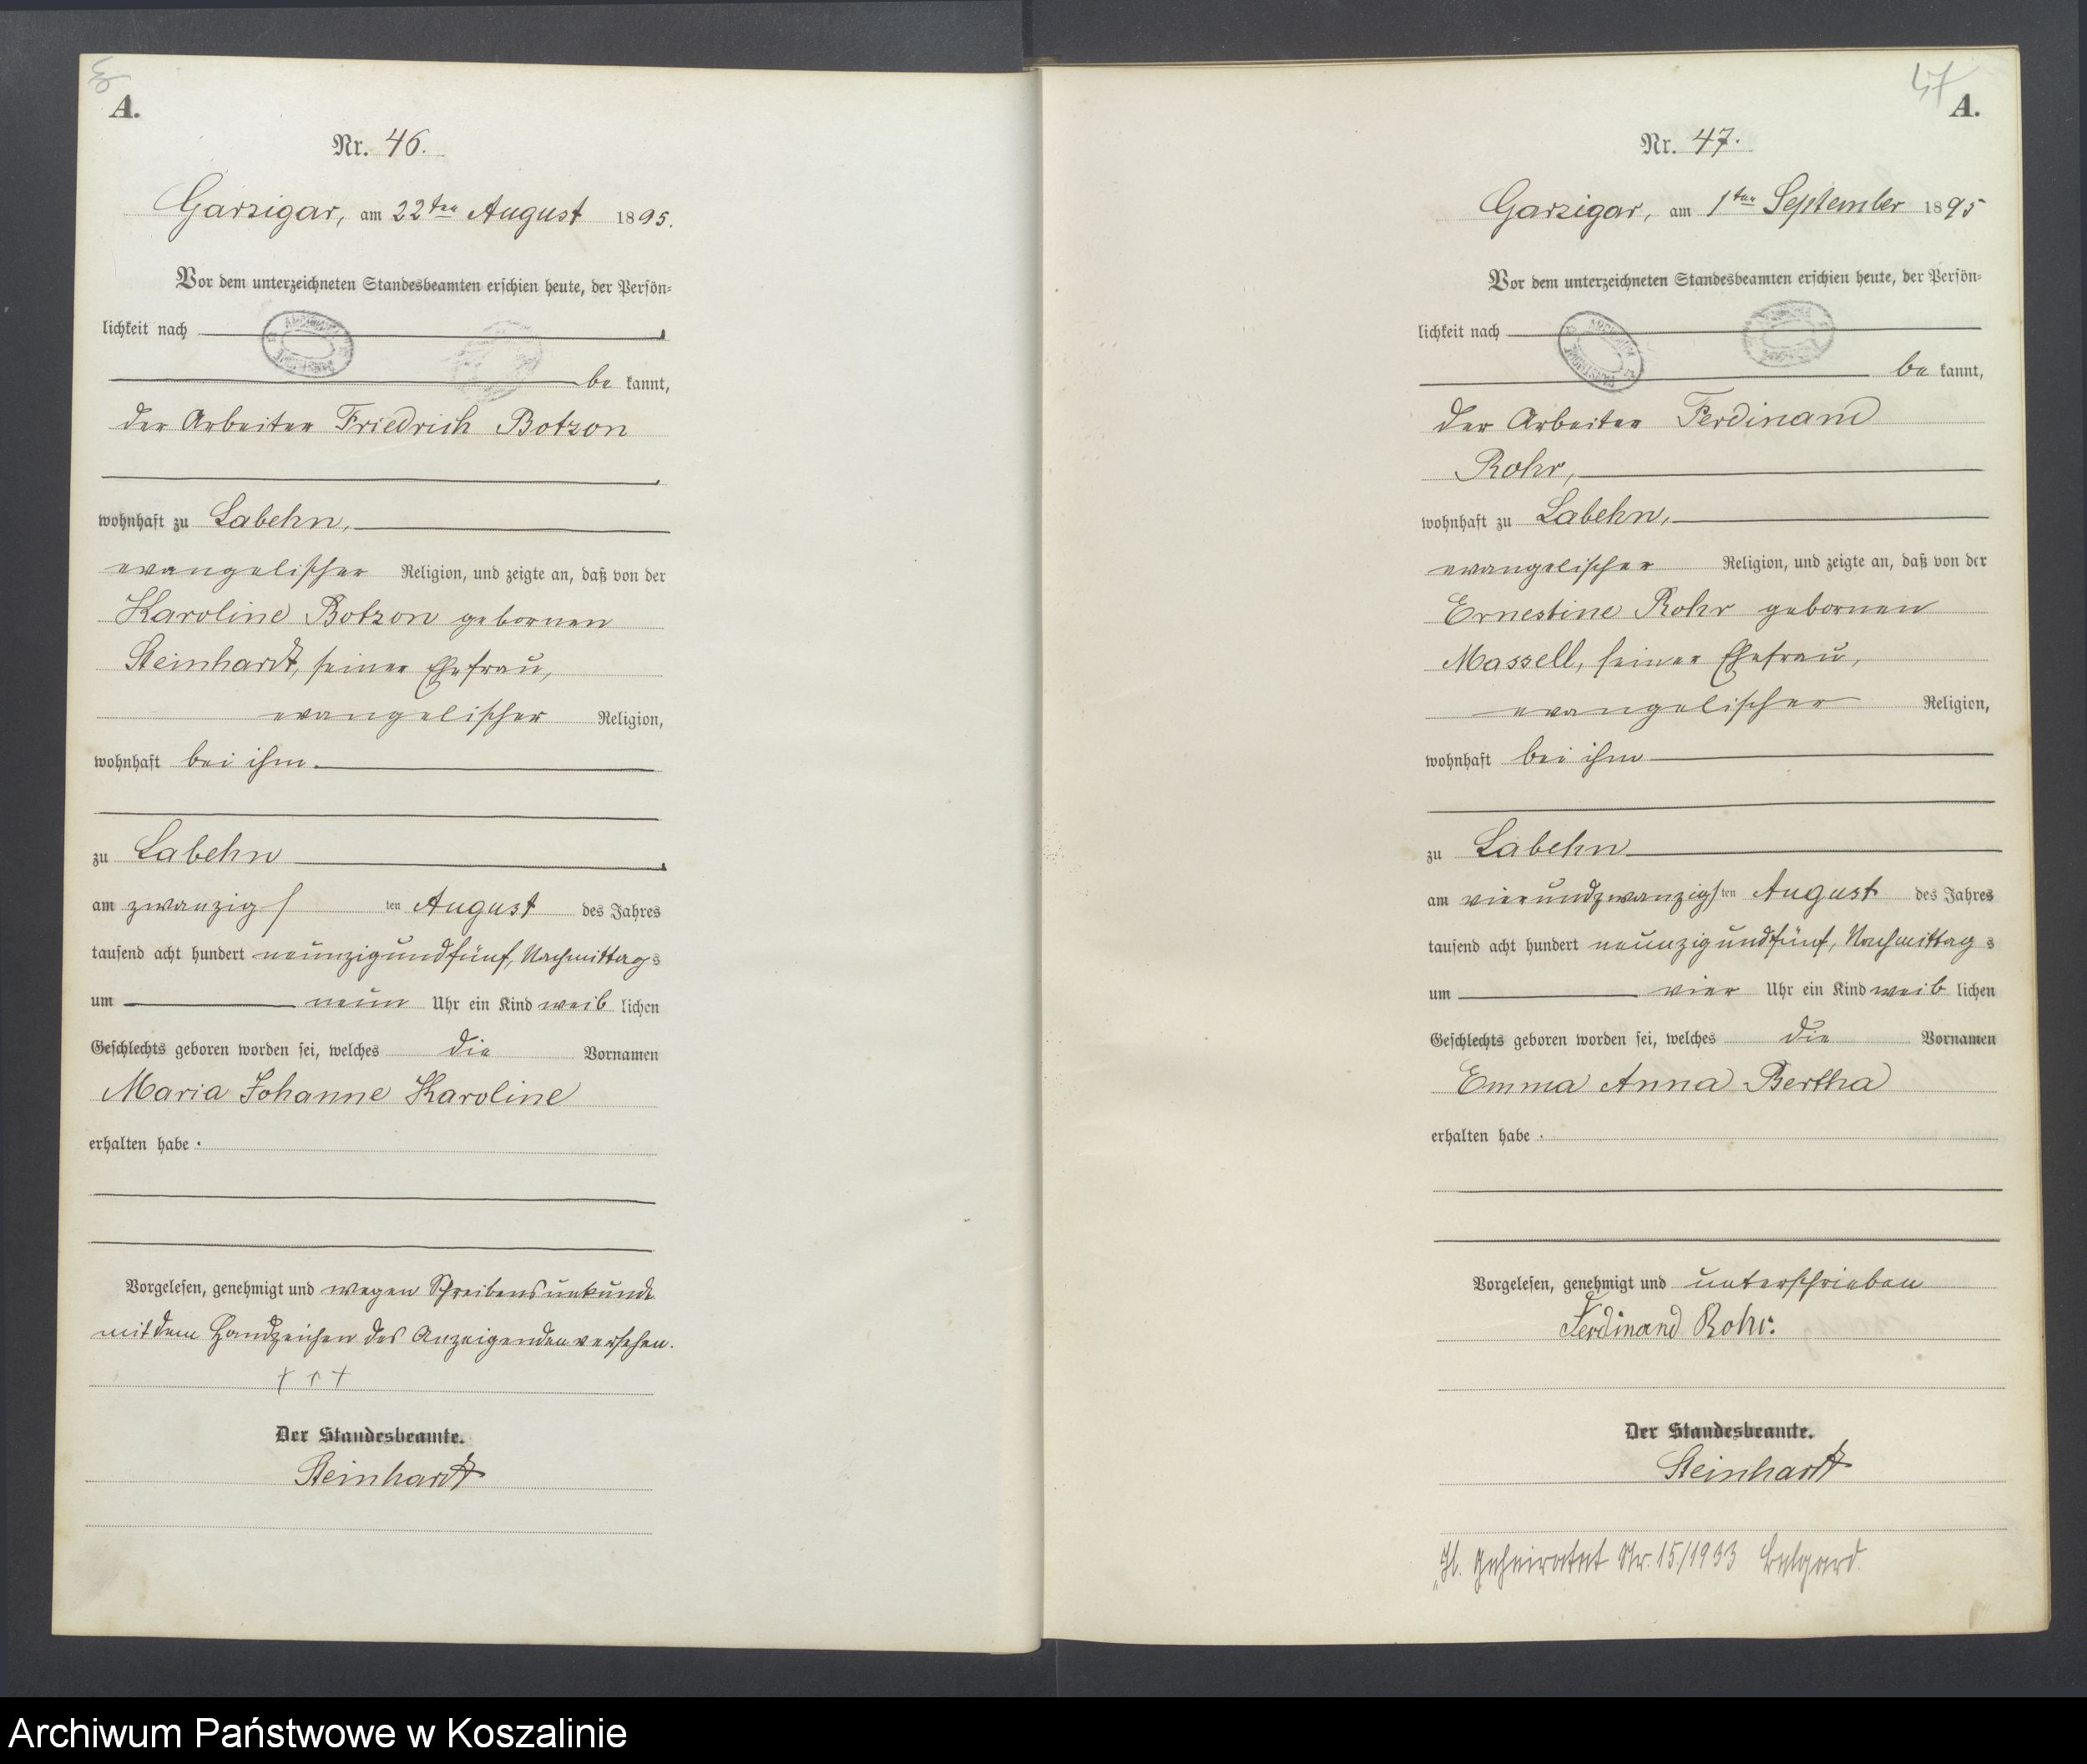 A.
Nr. 46.
Garzigar, am 22ten August 1895.
Vor dem unterzeichneten Standesbeamten erschien heute, der Persön=
lichkeit nach
be kannt,
der Arbeiter Friedrich Botzon
wohnhaft zu Labehn,
evangelischer Religion, und zeigte an, daß von der
Karoline Botzon geborenen
Steinhardt, seiner Ehefrau,
evangelischer Religion,
wohnhaft bei ihm
zu Labehn
am zwanzigsten August des Jahres
tausend acht hundert neunzigundfünf, Nachmittags
um neun Uhr ein Kind weiblichen
Geschlechts geboren worden sei, welches die Vornamen
Maria Johanne Karoline
erhalten habe.
Vorgelesen, genehmigt und wegen Schreibensunkunde
mit dem Handzeichen des Anzeigenden versehen.
+ + +
Der Standesbeamte.
Steinhardt
47
A.
Nr. 47.
Garzigar, am 1ten September 1895
Vor dem unterzeichneten Standesbeamten erschien heute, der Persön=
lichkeit nach
be kannt,
der Arbeiter Ferdinand
Rohr,
wohnhaft zu Labehn,
evangelischer Religion, und zeigte an, daß von der
Ernestine Rohr geborenen
Massell, seiner Ehefrau,
evangelischer Religion,
wohnhaft bei ihm
zu Labehn
am vierundzwanzigsten August des Jahres
tausend acht hundert neunzigundfünf, Nachmittags
um vier Uhr ein Kind weiblichen
Geschlechts geboren worden sei, welches die Vornamen
Emma Anna Bertha
erhalten habe.
Vorgelesen, genehmigt und unterschrieben
Ferdinand Rohr.
Der Standesbeamte.
Steinhardt
geheiratet Nr. 15/1933 Belgard.
Archiwum Państwowe w Koszalinie